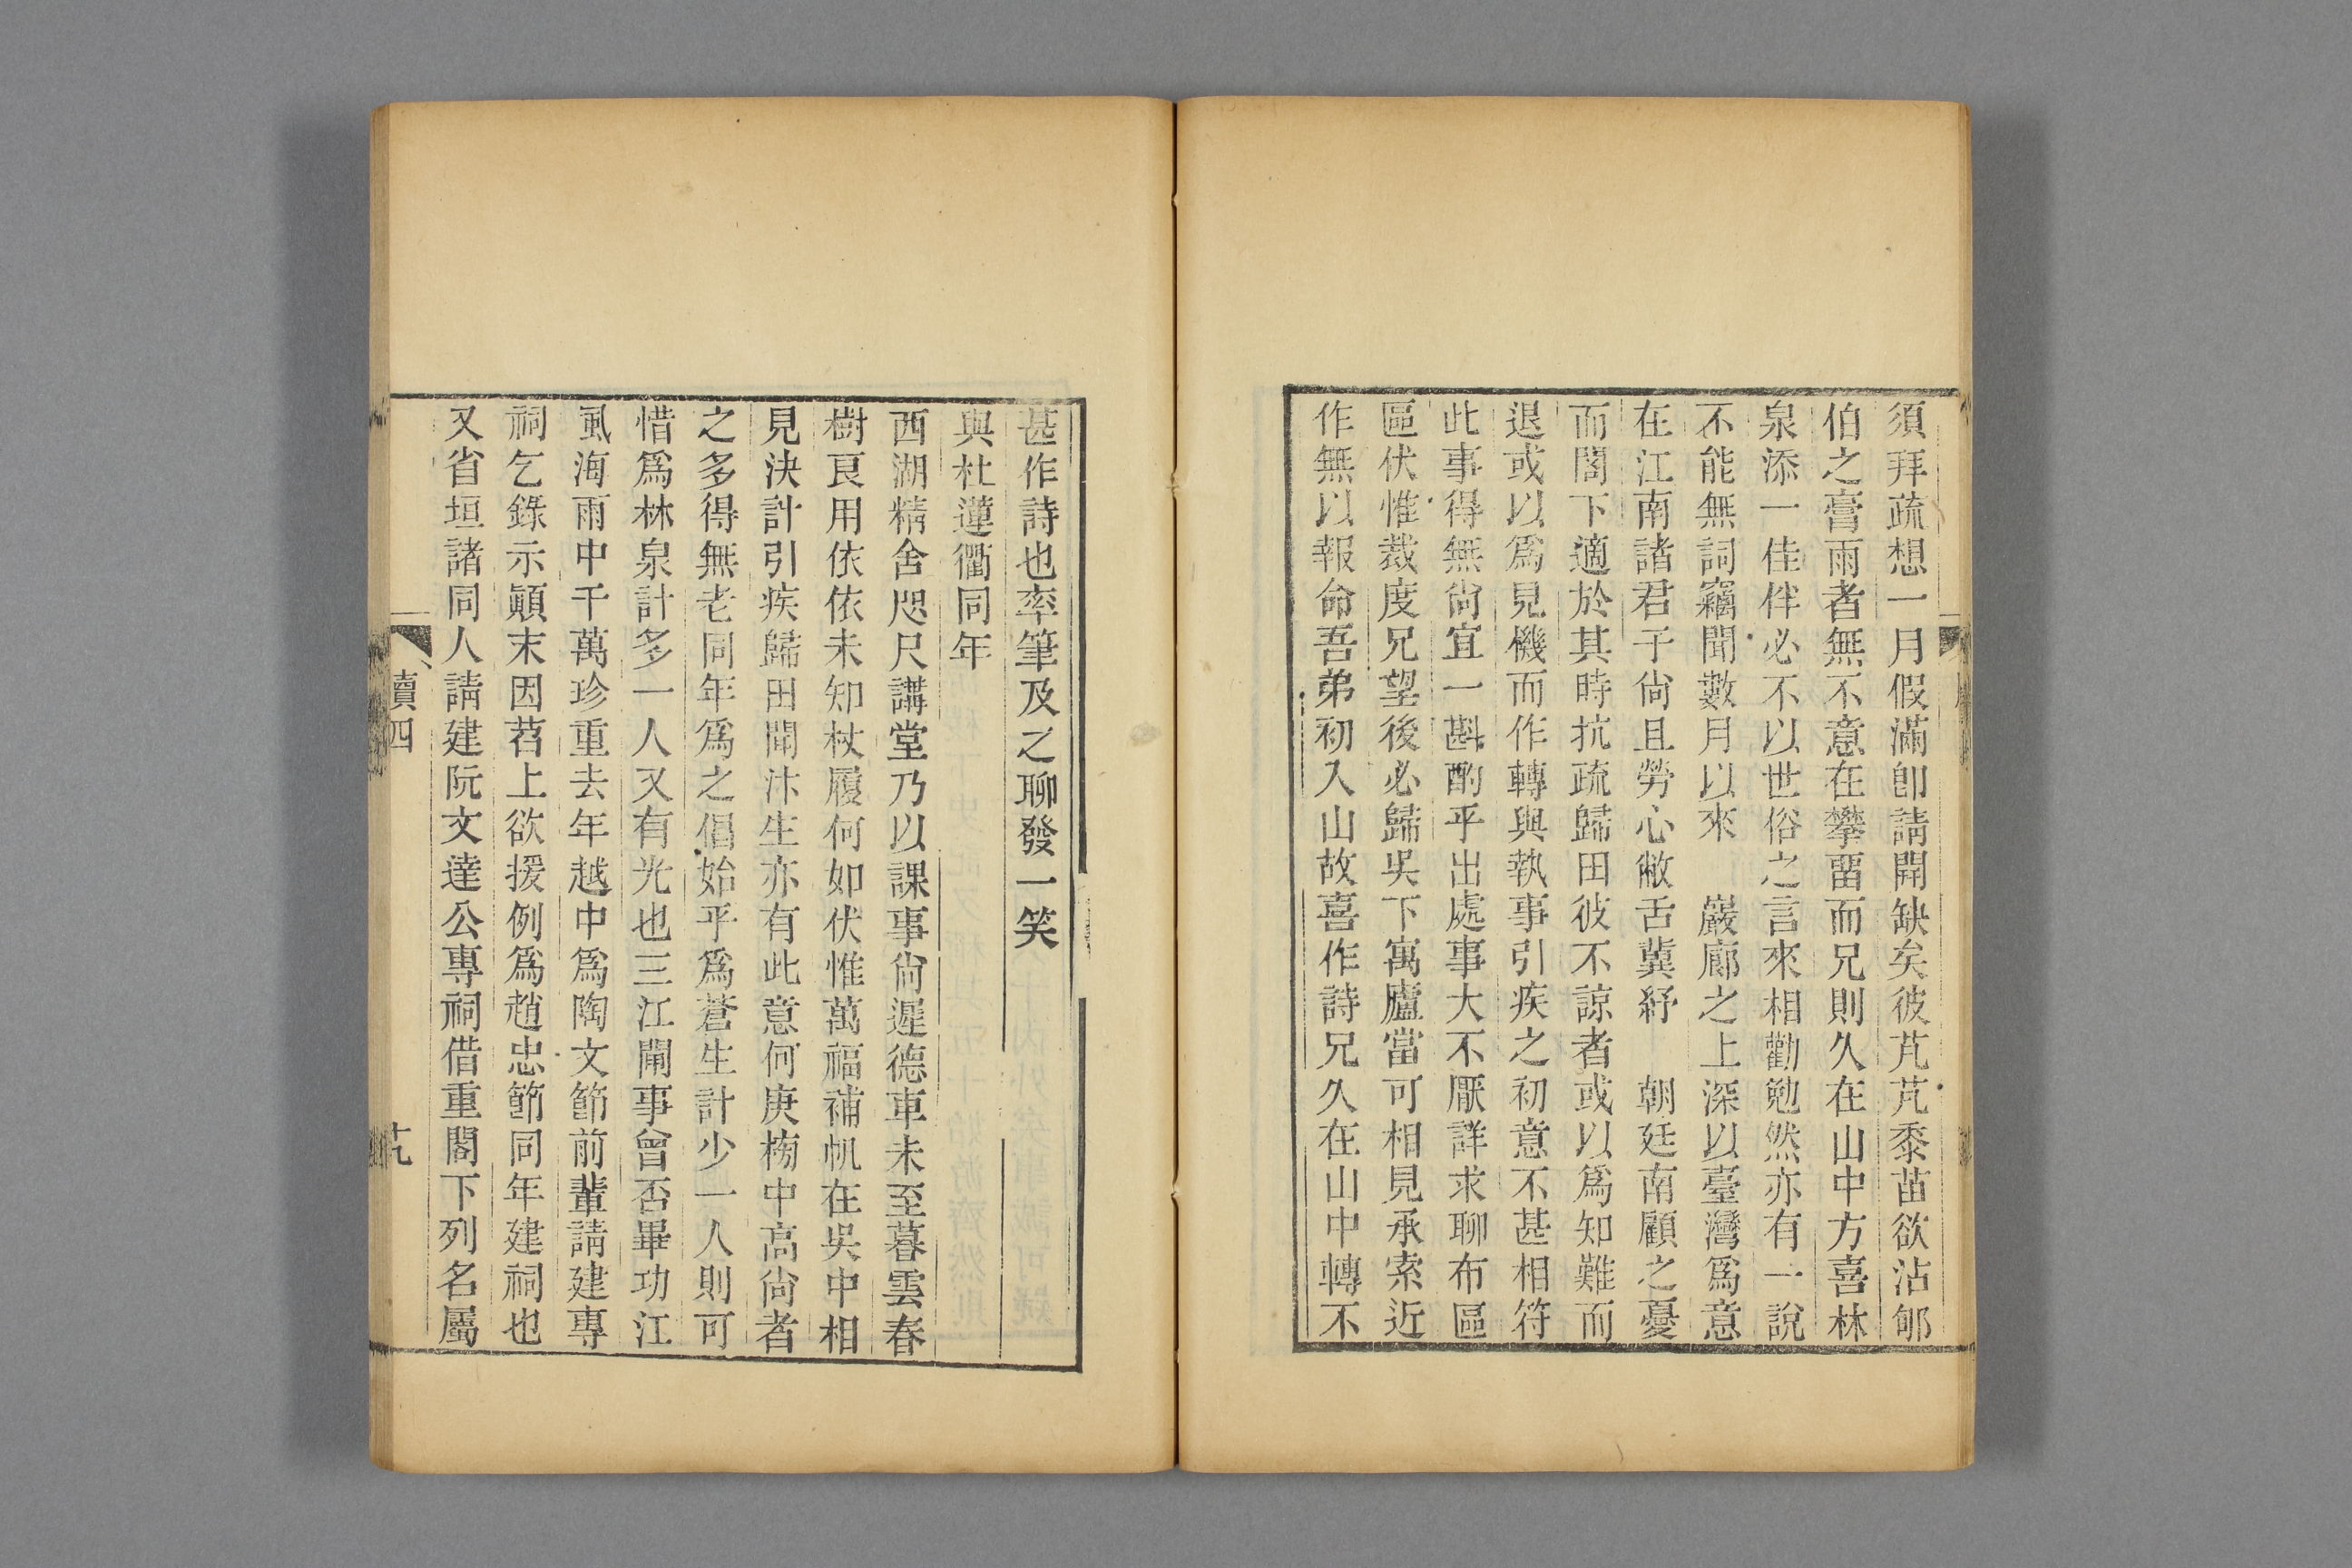 須拜疏想一月假滿卽請開缺矣彼芃芃黍苗欲沾郇
伯之膏雨者無不意在攀畱而兄則久在山中方喜林
泉添一佳伴必不以世俗之言來相勸勉然亦有一說
不能無詞竊聞數月以來　巖廊之上深以臺灣爲意
在江南諸君子尙且勞心敝舌冀紓　朝廷南顧之憂
而閣下適於其時抗疏歸田彼不諒者或以爲知難而
退或以爲見機而作轉與執事引疾之初意不甚相符
此事得無尙宜一斟酌乎出處事大不厭詳求聊布區
區伏惟裁度兄望後必歸吳下寓廬當可相見承索近
作無以報命吾弟初入山故喜作詩兄久在山中轉不
甚作詩也率筆及之聊發一笑
與杜蓮衢同年
西湖精舍咫尺講堂乃以課事尙遲德車未至暮雲春
樹良用依依未知杖履何如伏惟萬福補帆在吳中相
見決計引疾歸田聞汴生亦有此意何庚榜中高尙者
之多得無老同年爲之倡始乎爲蒼生計少一人則可
惜爲林泉計多一人又有光也三江閘事曾否畢功江
風海雨中千萬珍重去年越中爲陶文節前輩請建專
祠乞錄示顚末因苕上欲援例爲趙忠節同年建祠也
又省垣諸同人請建阮文達公專祠借重閣下列名屬
牘四